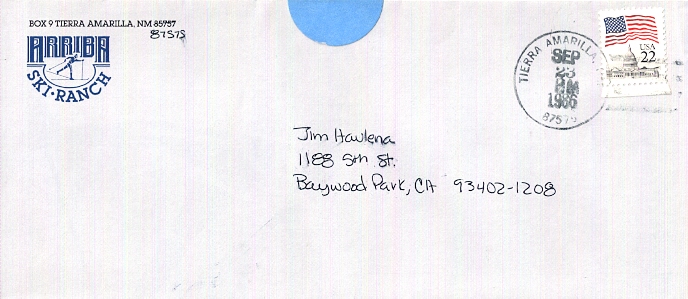 BOX 9 TIERRA AMARILLA, NM 85757
87575
ARRIBA
SKI·RANCH
TIERRA AMARILLA,
SEP
23
PM
1986
87575
USA
22
Jim Havlena
1188 5th St.
Baywood Park, CA 93402-1208